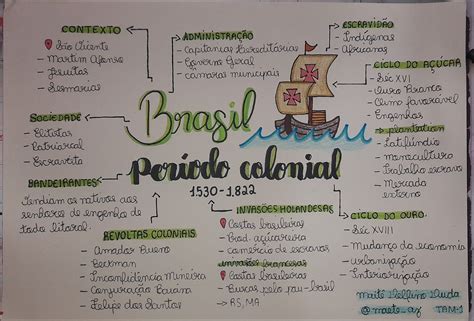 CONTEXTO
São Vicente
- Martim Afonso
- Jesuítas
- Sesmarias
ADMINISTRAÇÃO
- Capitanias Hereditárias
- Governo Geral
- câmaras municipais
ESCRAVIDÃO
- Indígenas
- Africanas
CICLO DO AÇÚCAR
- Séc XVI
- Ouro Branco
- Clima favorável
- Engenhos
→ plantation
- Latifúndio
- monocultura
- Trabalho escravo
- Mercado externo
SOCIEDADE
- Elitistas
- Patriarcal
- Escravista
Brasil
Período colonial
1530-1822
BANDEIRANTES
Vendiam os nativos aos
senhores de engenho de
todo litoral.
REVOLTAS COLONIAIS
- Amador Bueno
- Beckman
- Inconfidência Mineira
- Conjuração Baiana
- Felipe dos Santos
INVASÕES HOLANDESAS
Costas brasileiras
- Prod. açucareira
- comércio de escravos
invasões francesas
Costas brasileiras
- Buscas pelo pau-brasil
→ RS, MA
CICLO DO OURO
- Séc XVIII
- Mudança da economia
- urbanização
- Interiorização
TAM-1